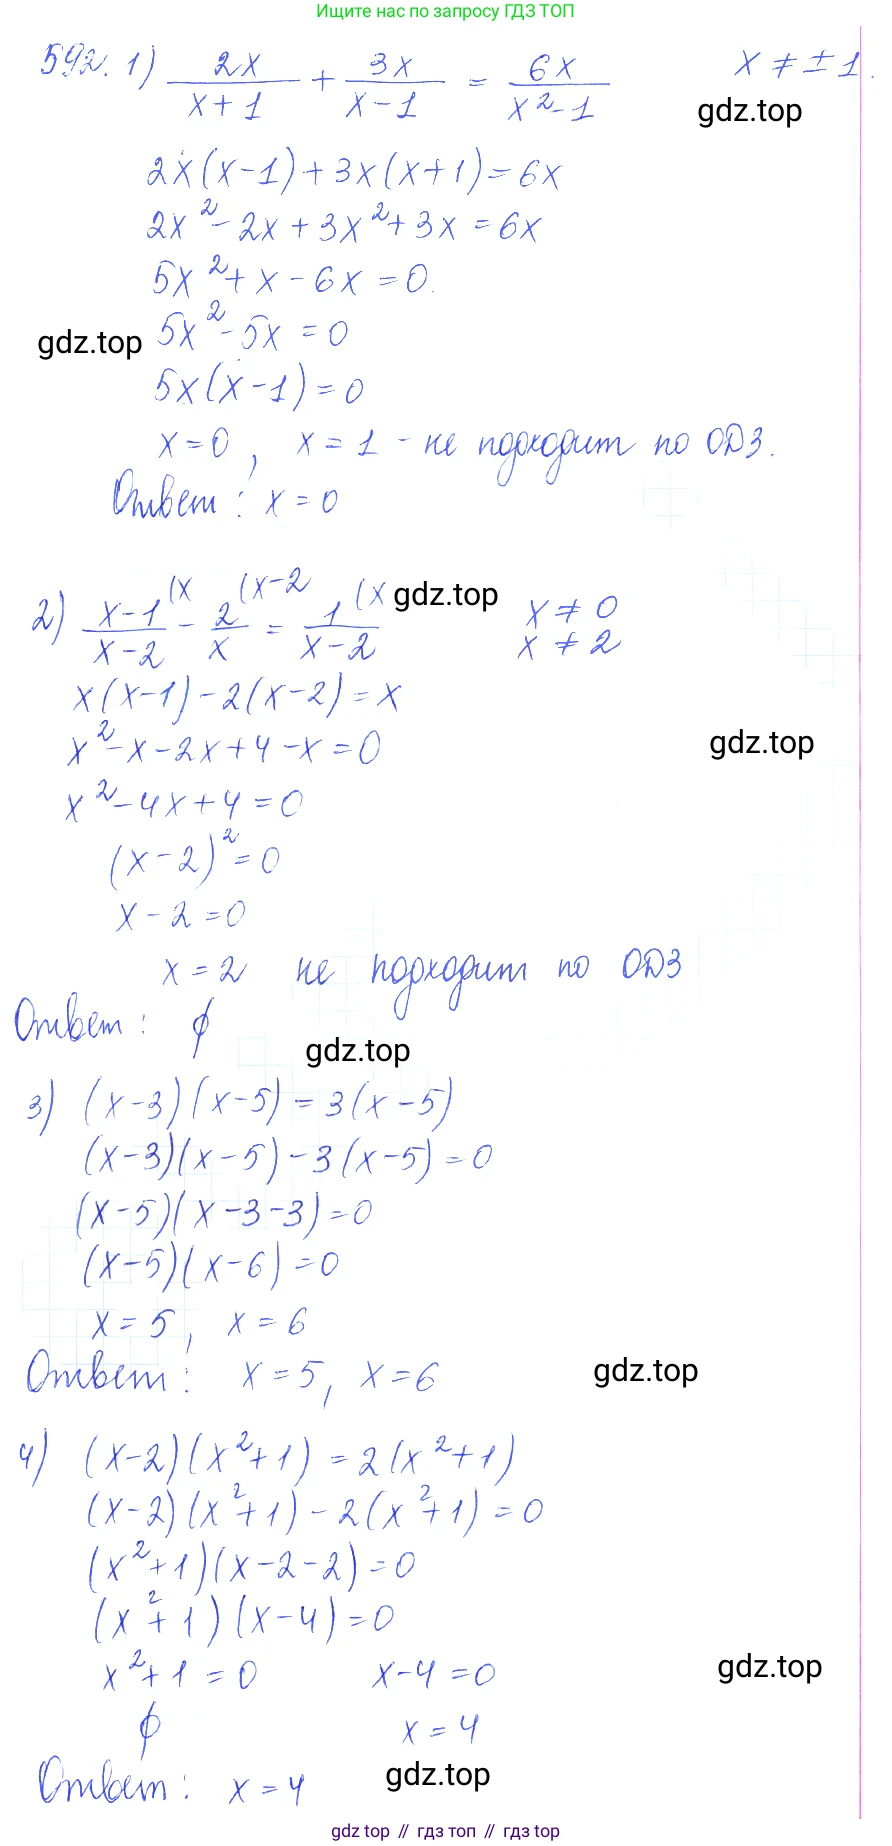 Ищите нас по запросу ГДЗ ТОП
592. 1) 2x/(x+1) + 3x/(x-1) = 6x/(x²-1)   x ≠ ±1.
gdz.top
2x(x-1)+3x(x+1)=6x
2x²-2x+3x²+3x=6x
5x²+x-6x=0.
gdz.top 5x²-5x=0
5x(x-1)=0
x=0, x=1 - не подходит по ОДЗ.
Ответ: x=0
2) (x-1)/(x-2) (x - 2/x (x-2 = 1/(x-2) (x gdz.top x ≠ 0
x ≠ 2
x(x-1)-2(x-2)=x
x²-x-2x+4-x=0 gdz.top
x²-4x+4=0
(x-2)²=0
x-2=0
x=2 не подходит по ОДЗ
Ответ: ϕ
gdz.top
3) (x-3)(x-5)=3(x-5)
(x-3)(x-5)-3(x-5)=0
(x-5)(x-3-3)=0
(x-5)(x-6)=0
x=5, x=6
Ответ: x=5, x=6 gdz.top
4) (x-2)(x²+1)=2(x²+1)
(x-2)(x²+1)-2(x²+1)=0
(x²+1)(x-2-2)=0
(x²+1)(x-4)=0
x²+1=0 x-4=0 gdz.top
ϕ x=4
Ответ: x=4 gdz.top
gdz.top // гдз топ // gdz top